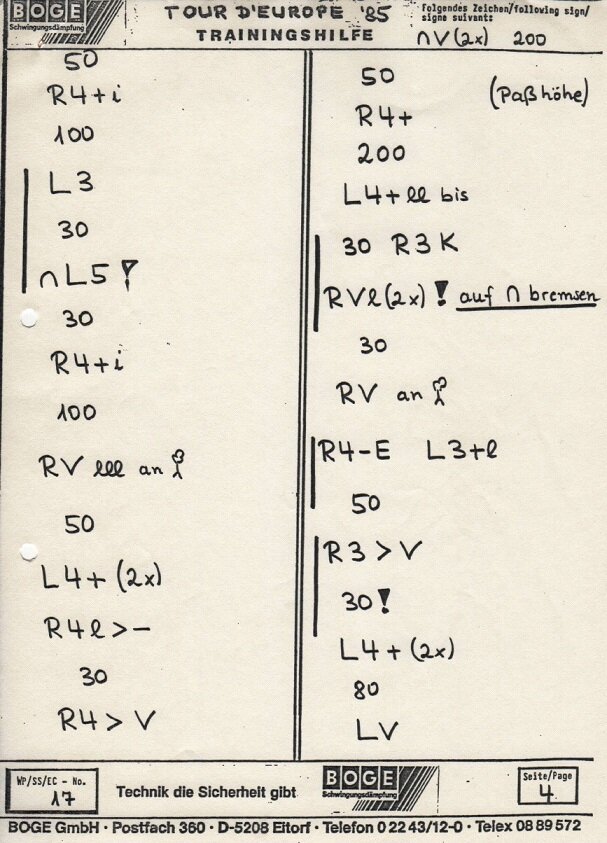 BOGE
Schwingungsdämpfung
TOUR D'EUROPE '85
TRAININGSHILFE
folgendes Zeichen/following sign/
signe suivant:
∩V(2x) 200
50
R4+i
100
L3
30
∩L5 !
30
R4+i
100
RV lll an
50
L4+ (2x)
R4l>-
30
R4 > V
50
(Paßhöhe)
R4+
200
L4+ ll bis
30 R3 K
RVl(2x) ! auf ∩ bremsen
30
RV an
R4-E L3+l
50
R3 > V
30 !
L4+ (2x)
80
LV
WP/SS/EC - No.
17
Technik die Sicherheit gibt
BOGE
Schwingungsdämpfung
Seite/Page
4
BOGE GmbH · Postfach 360 · D-5208 Eitorf · Telefon 0 22 43/12-0 · Telex 08 89 572